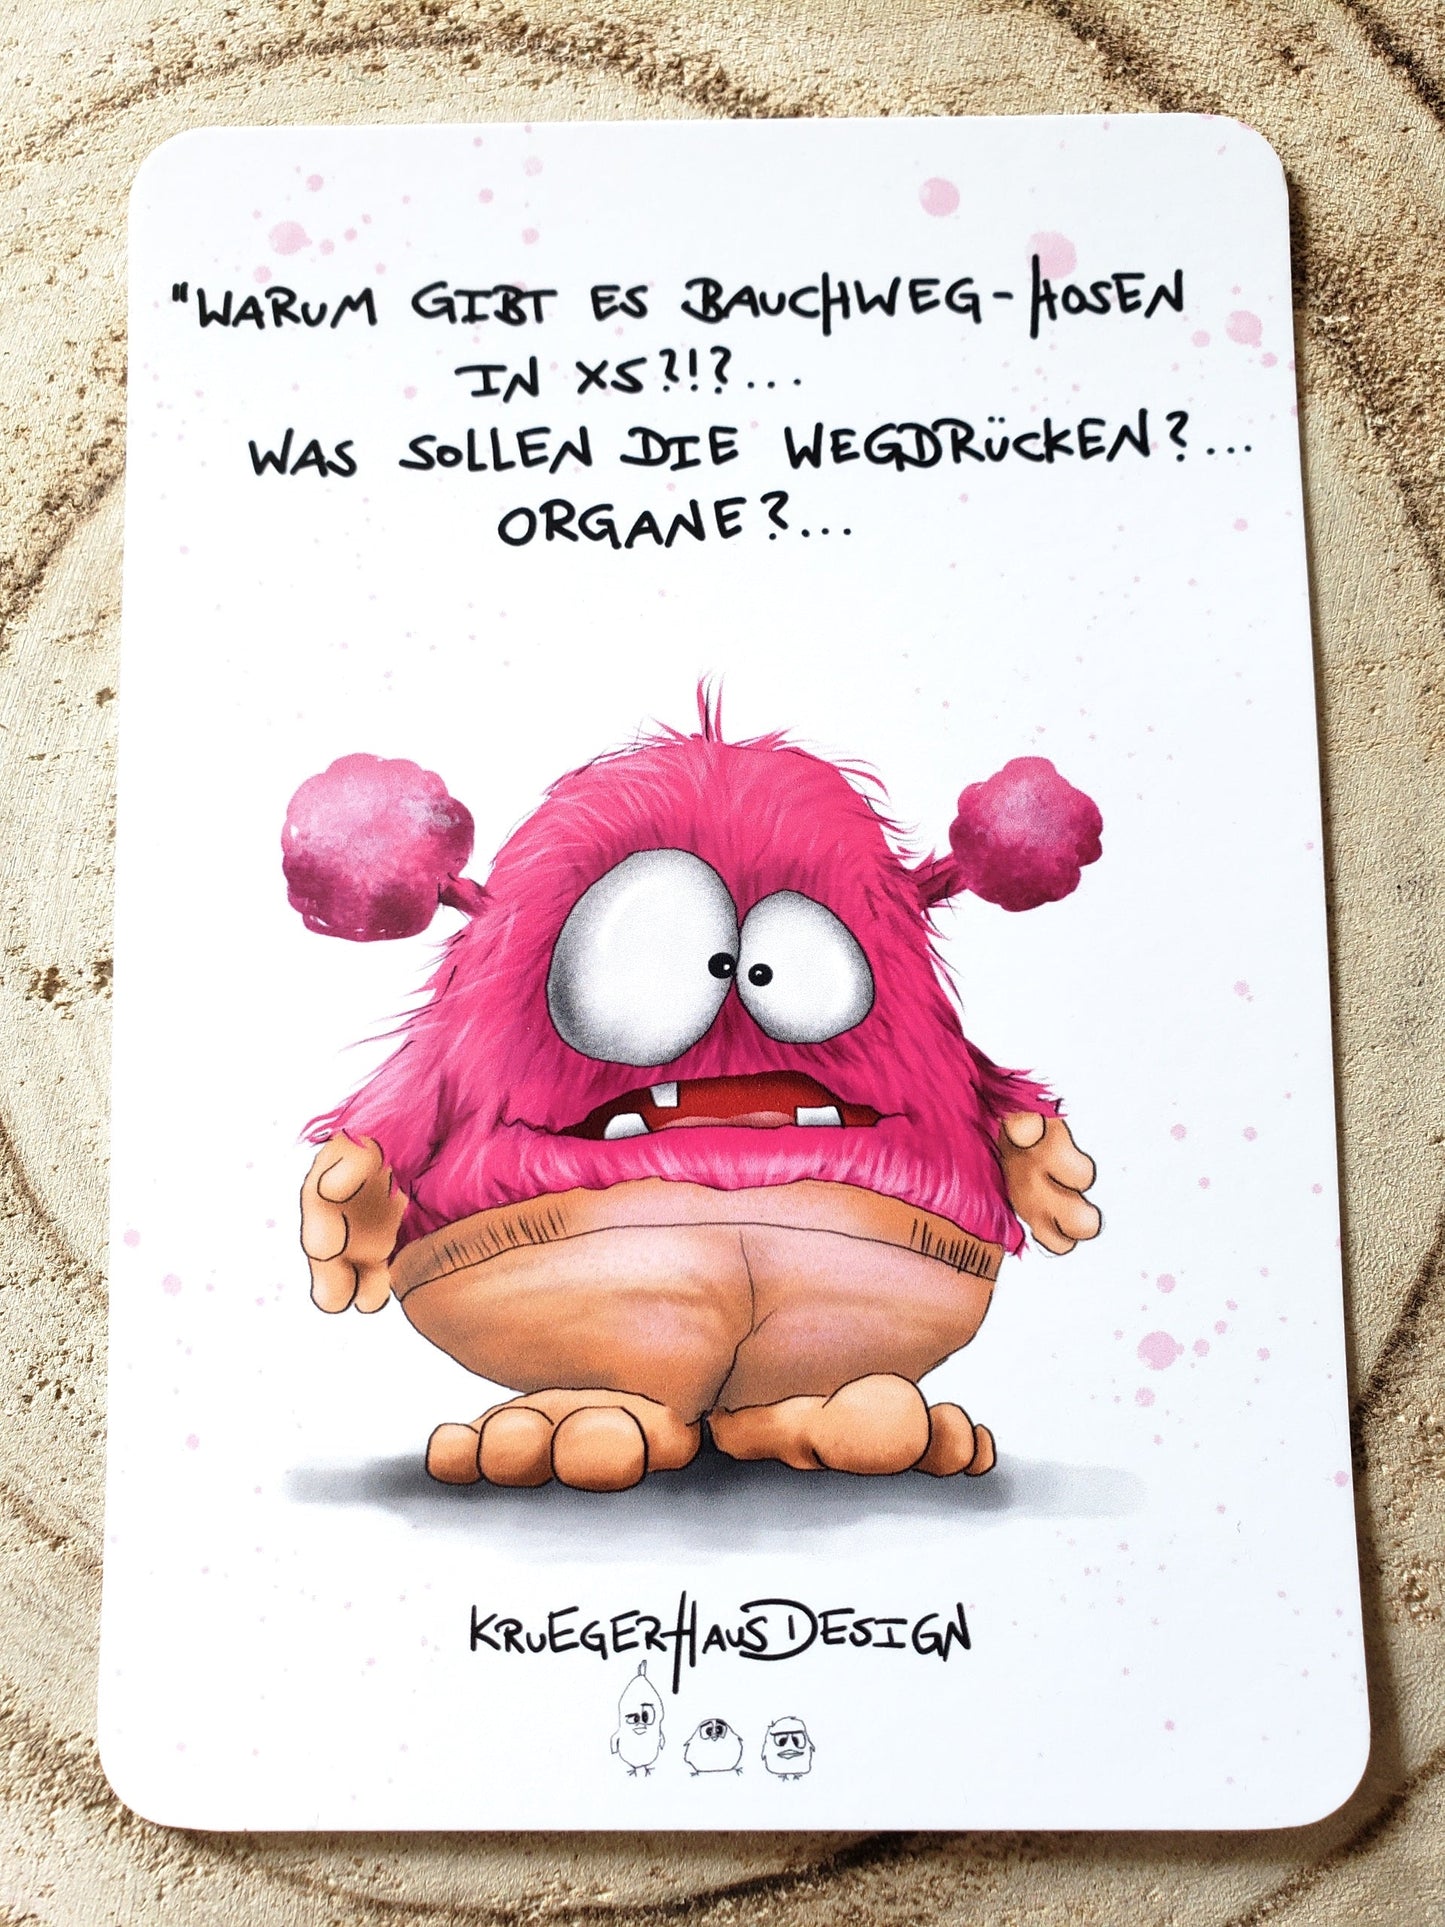 "WARUM GIBT ES BAUCHWEG-HOSEN
IN XS?!?...
WAS SOLLEN DIE WEGDRÜCKEN?...
ORGANE?...
KRUEGERHAUSDESIGN